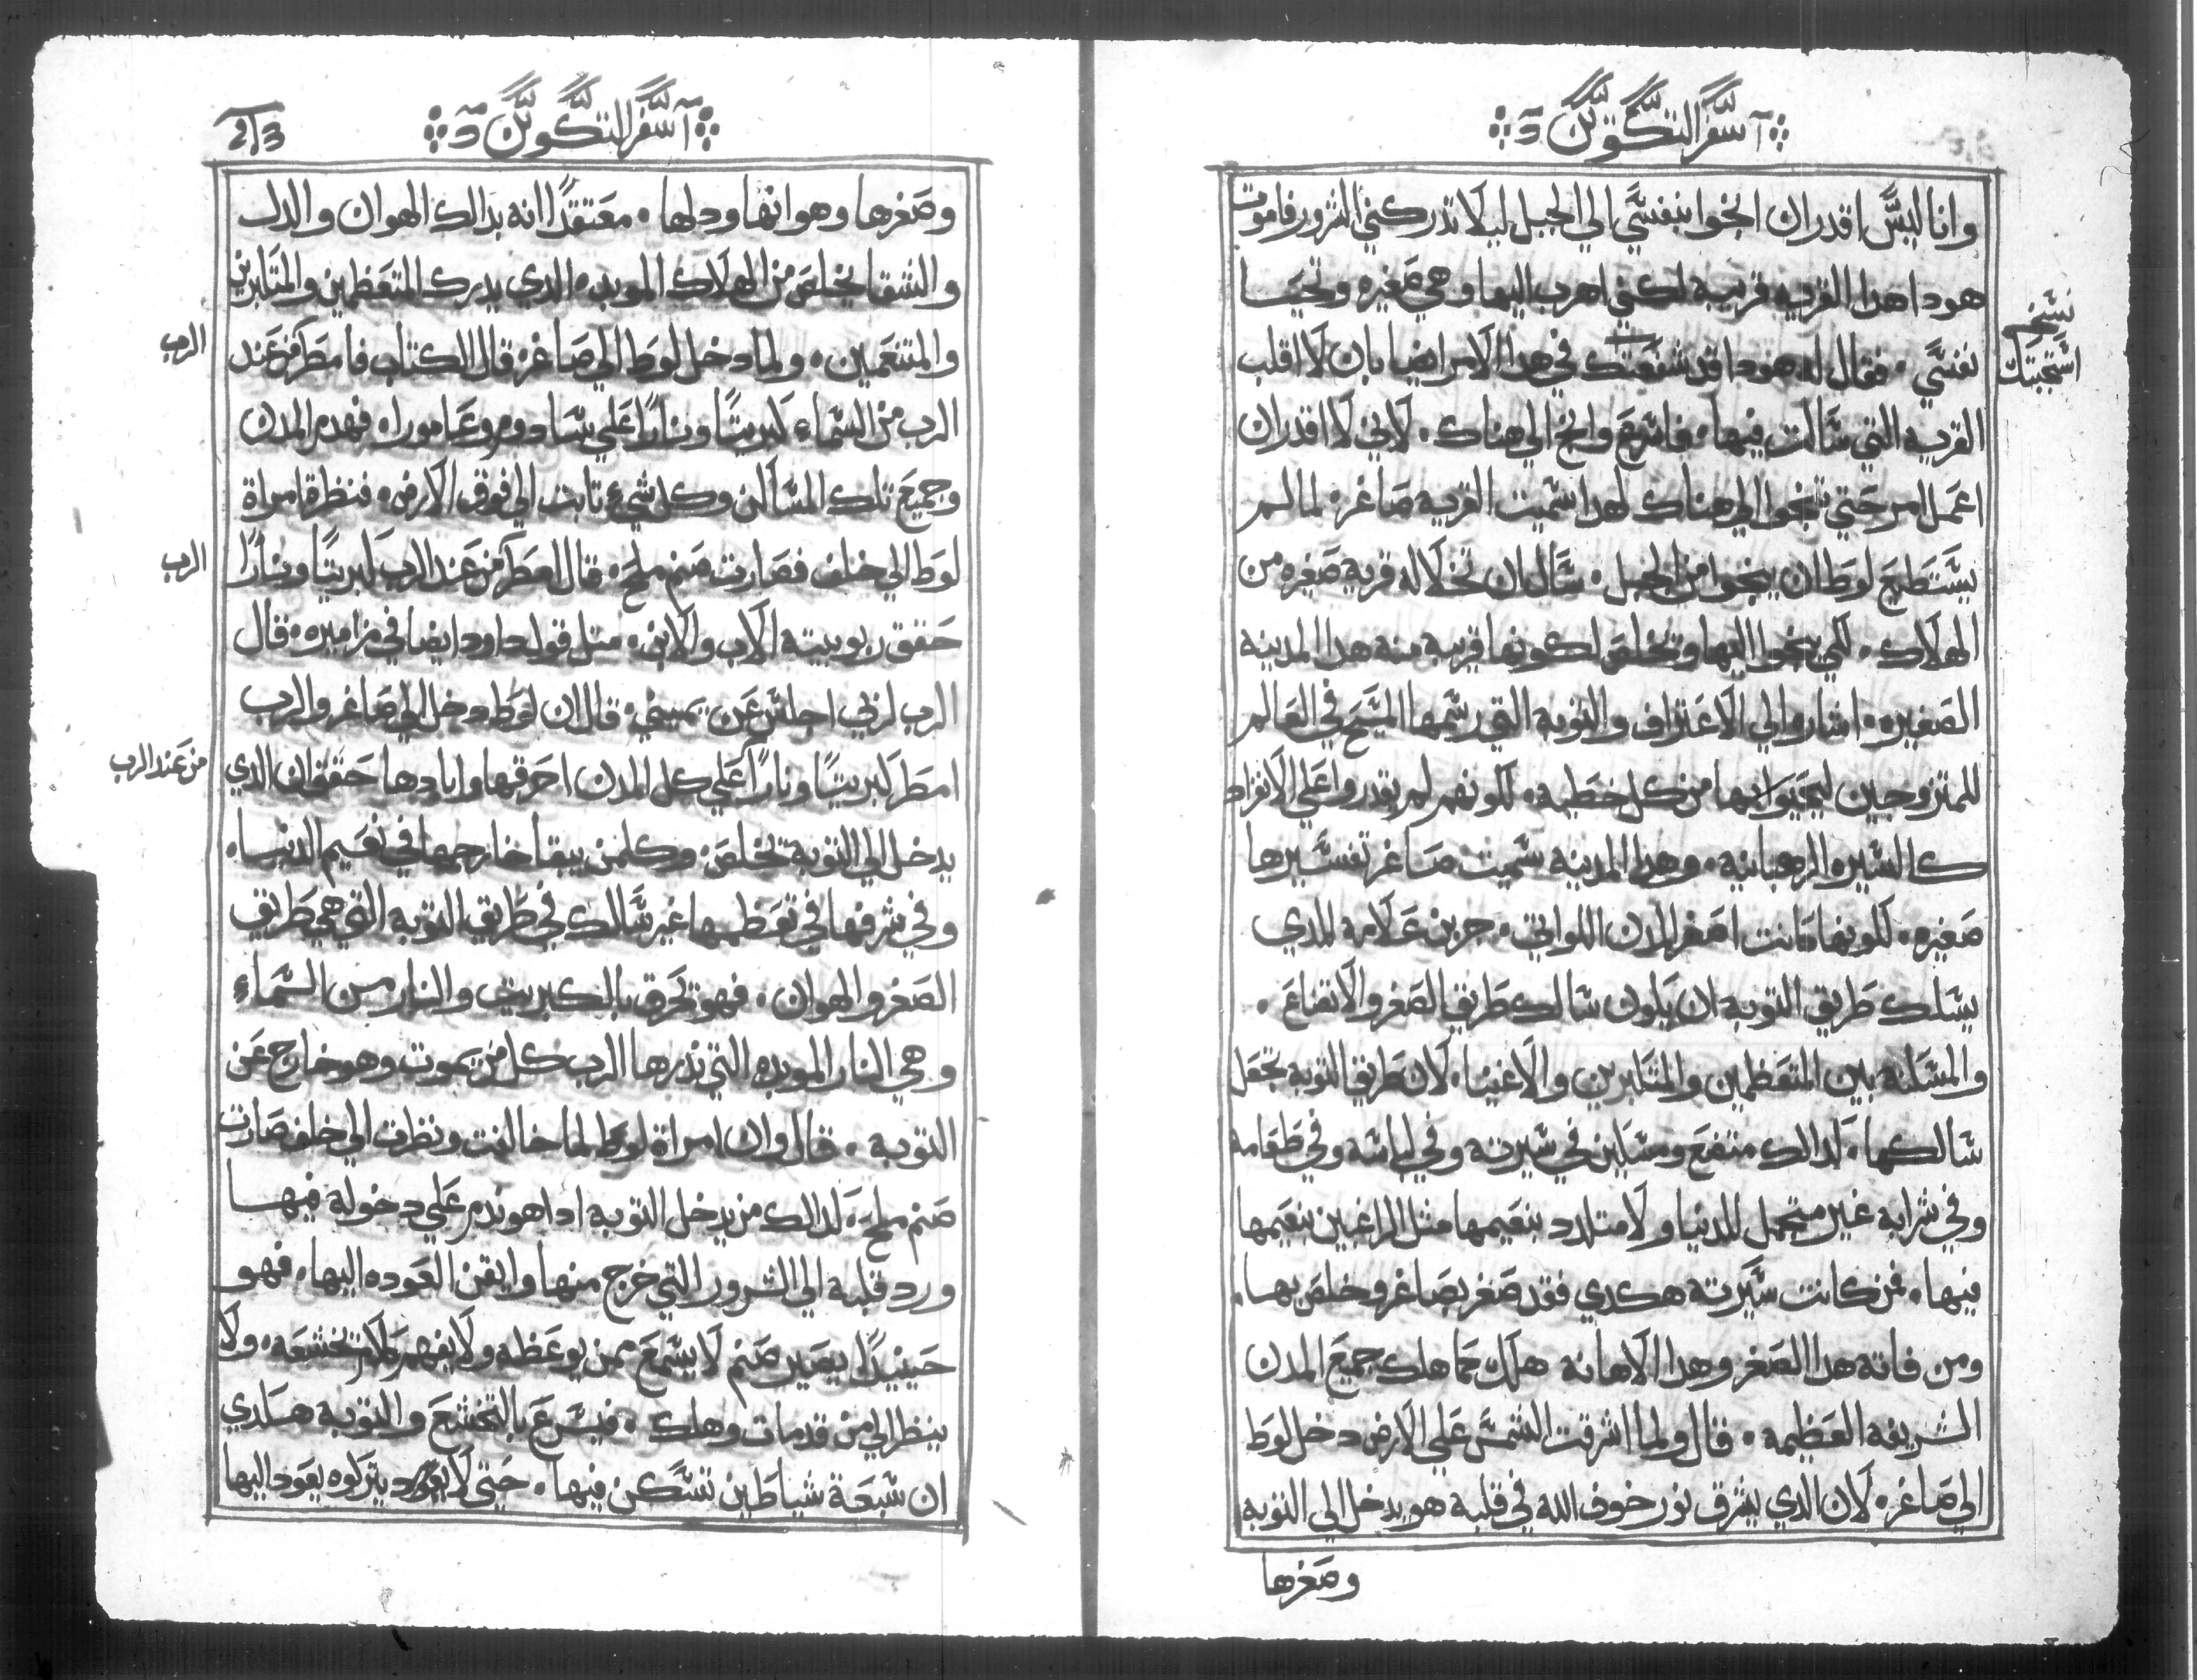 سفر التكوين
وانا ليس اقدر ان انجوا بنفسي الي الجبل ليلا تدركني الشرور فاموت
هودا هدا القريه قريبه لكني اهرب اليها وهي صغيره وتحيا
نفسي ٠ فقال له هودا قد شفعتك في هدا الامر ايضا بان لا اقلب
القريه التي سالت فيها ٠ فاسرع وانج الي هناك ٠ لاني لا اقدر ان
اعمل امر حتي تنجوا الي هناك لهدا سميت القريه صاغر ٠ لما لم
يستطيع لوط ان ينجوا من الجبل ٠ سال ان تخلا له قرية صغيره من
الهلاك ٠ لكي ينجوا اليها وتخلص لكونها قريبه منه هدا المدينه
الصغيره ٠ اشاره الي الاعتراف والتوبه التي رسمها المسيح في العالم
للمتزوجين ليحيوا بها من كل خطيه ٠ لكونهم لم يقدروا علي الانفراد
كالسيره الرهبانيه ٠ وهدا المدينه سميت صاغر تفسيرها
صغيره ٠ لكونها كانت اصغر المدن اللواتي ٠ حرين علامه للدي
يسلك طريق التوبه ان يكون سالك طريق الصغر والاتضاع ٠
والمسكنه بين المتعظمين والمتكبرين والاغنيا ٠ لان طريق التوبه تجعل
سالكها ٠ لدالك متضع ومسكين في سيرته وفي لباسه وفي طعامه
وفي شرابه غير متجمل للدنيا ولا متلدد بنعيمها مثل الراغبين بنعيمها
فيها ٠ فمن كانت سيرته هكدي فقد صغر بصاغر وخلص بها ٠
ومن فاته هدا الصغر وهدا الاهانه هلك كما هلك جميع المدن
الشريفه العظيمه ٠ قال ولما اشرقت الشمس علي الارض دخل لوط
الي صاغر ٠ لان الدي يشرق نور خوف الله في قلبه هو يدخل الي التوبه
وصغرها
نسخه
استجبتك
سفر التكوين
213
وصغرها وهوانها ودلها ٠ معتقدا انه بدالك الهوان والدل
والشقا يخلص من الهلاك الموبده الدي يدرك المتعظمين والمتكبرين
والمتنعمين ٠ ولما دخل لوط الي صاغر ٠ قال الكتاب فامطر من عند
الرب من السماء كبريتا ونارا علي سادوم وعامورا ٠ فهدم المدن
وجميع تلك المساكن وكل شيء نابت الي فوق الارض ٠ فنظرة امراة
لوط الي خلف فصارت صنم ملح ٠ قال امطر من عند الرب كبريتا ونارا
حقق ربوبيته الاب والابن ٠ متل قول داود ايضا في مزاميره ٠ قال
الرب لربي اجلس عن يميني ٠ قال ان لوط دخل الي صاغر والرب
امطر كبريتا ونارا علي كل المدن احرقها وابادها حقق ان الدي
يدخل الي التوبه تخلص ٠ وكلمن يبقا خارجها في نعيم الدنيا ٠
وفي شرفها في تعظمها غير سالك في طريق التوبه التي هي طريق
الصغر والهوان ٠ فهو تحرق بالكبريت والنار من السماء
وهي النار الموبده التي ندرها الرب كل من يموت وهو خارج عن
التوبه ٠ قال وان امراة لوط لما خالفت ونظرت الي خلف صارت
صنم ملح ٠ لدالك من يدخل التوبه ادا هو ندم علي دخوله فيها
ورد قلبه الي الشرور التي خرج منها وايقن العوده اليها ٠ فهو
حينيدا يصير صنم لا يسمع ممن يوعظه ولا يفهم تخشعه ٠ ولا
ينظر الي من قد مات وهلك ٠ فيسرع بالتخشع والتوبه هكدي
ان سبعة شياطين تسكن فيها ٠ حتي لا يتركوه يعود اليها
الرب
الرب
من عند الرب